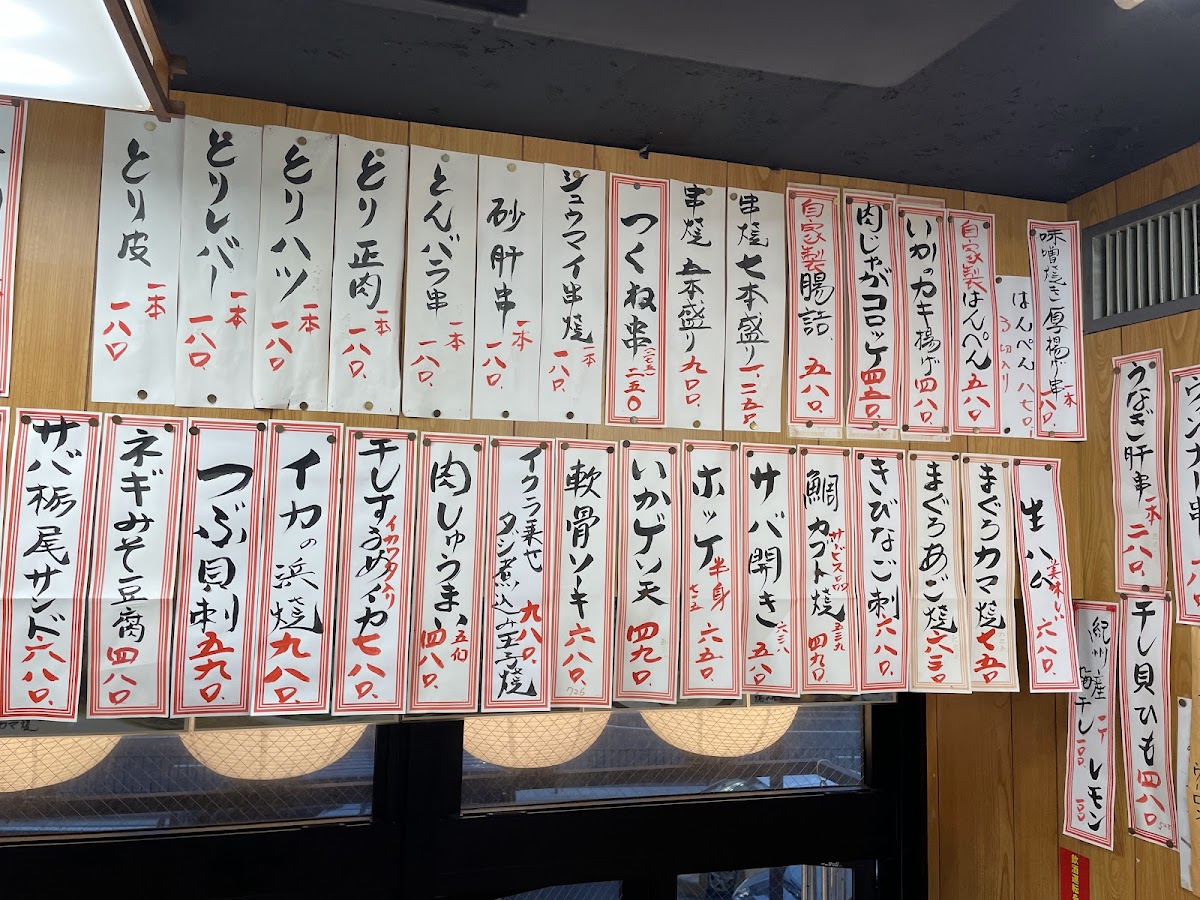 とり皮 一本 一八〇
とりレバー 一本 一八〇
とりハツ 一本 一八〇
とり正肉 一本 一八〇
とんバラ串 一本 一八〇
砂肝串 一本 一八〇
シュウマイ串焼 一本 一八〇
つくね串 二五〇
串焼五本盛り 九〇〇
串焼七本盛り 一、二五〇
自家製腸詰 五八〇
肉じゃがコロッケ 四五〇
いかのカキ揚げ 四八〇
自家製はんぺん 五八〇
はんぺん
味噌焼き厚揚げ串 一本 一八〇
サバ栃尾サンド 六八〇
ネギみそ豆腐 四八〇
つぶ貝刺 五九〇
イカの浜焼 九八〇
干しするめイカ
イカワタ入り
七八〇
肉しゅうまい 五個 四八〇
イクラ乗せ
ダシ煮込み玉子焼
九八〇
軟骨ソーキ 六八〇
726
いかゲソ天 四九〇
ホッケ半身 六五〇
サバ開き 五八〇
鯛カブト焼
サービス品
四九〇
きびなご刺 六八〇
まぐろあご焼 六三〇
まぐろカマ焼 七五〇
生ハム
美味しい
六八〇
うなぎ肝串 一本 二八〇
ウインナー串
紀州産梅干し
レモン
干し貝ひも 四八〇
飲酒運転